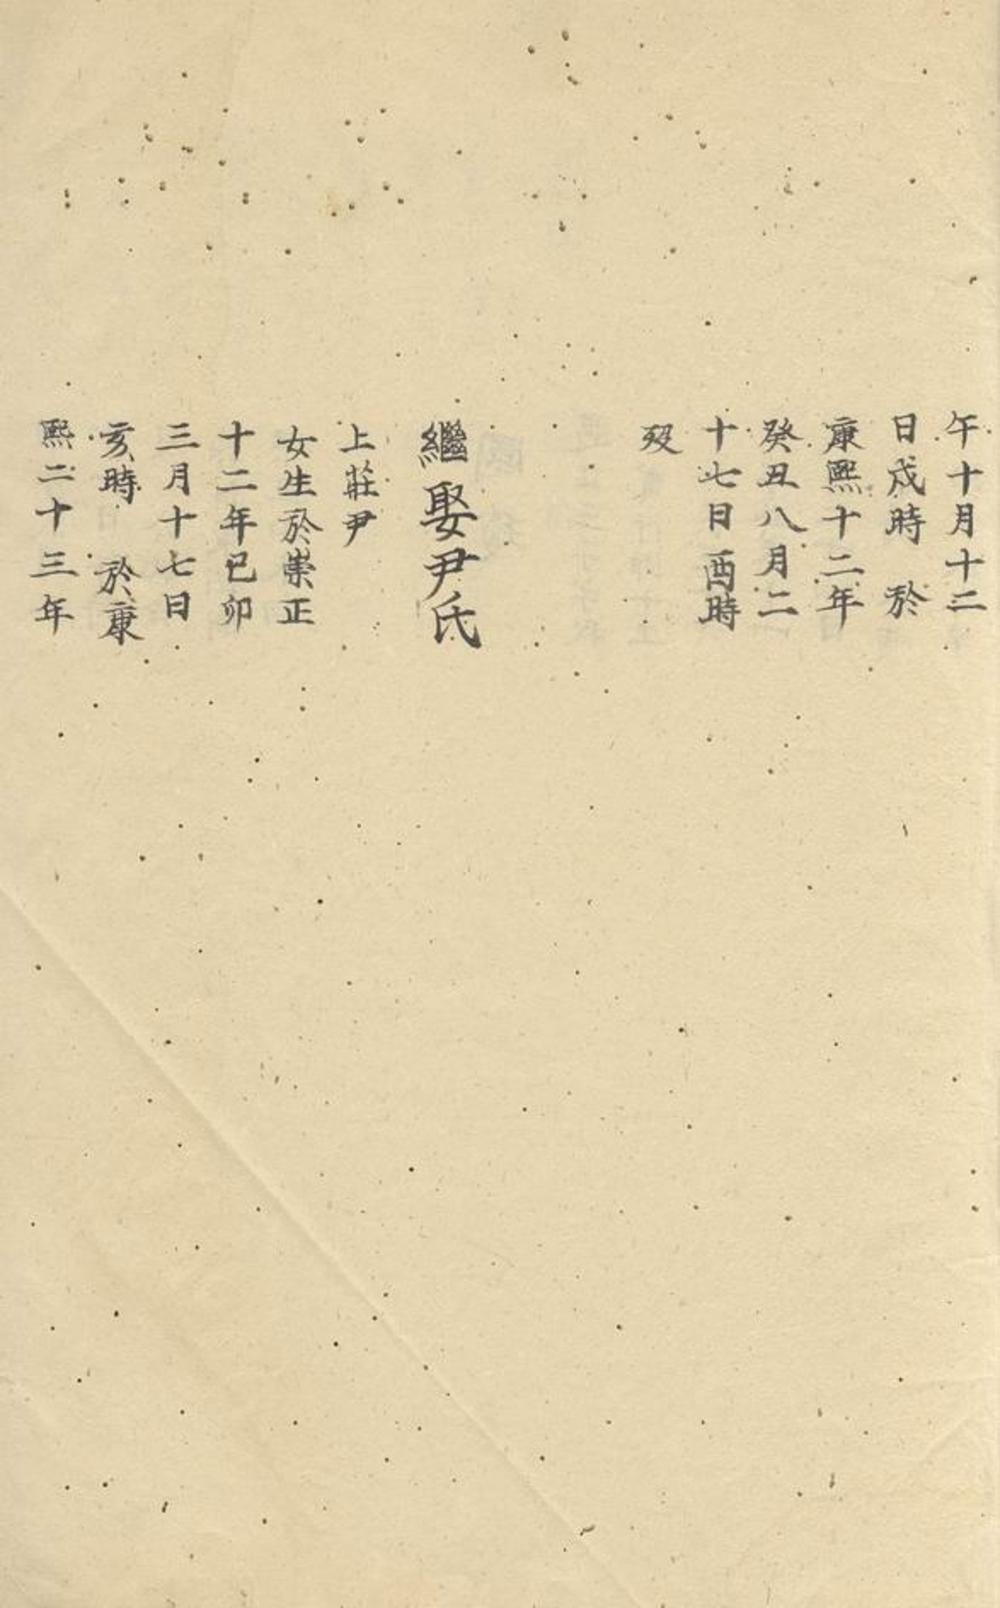 午十月十二
日戌時 於
康熙十二年
癸丑八月二
十七日酉時
歿
繼娶尹氏
上莊尹
女生於崇正
十二年已卯
三月十七日
亥時 於康
熙二十三年